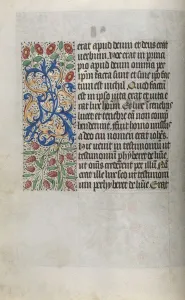 erat apud deum et deus erat
verbum. Hoc erat in princi
pio apud deum omnia per
ipsum facta sunt et sine ipso fac
tum est nichil. Quod factū
est in ipso vita erat et vita e
rat lux hoīm. Et lux ī tenebris
lucet et tenebre eum non com
prehenderunt. fuit homo missus
a deo cui nomen erat iohēs.
hic venit in testimonium ut
testimonium phiberet de lumīe
ut oīnes crederent per illū. Nō
erat ille lux sed ut testimoni
um perhyberet de lumīe. Erat